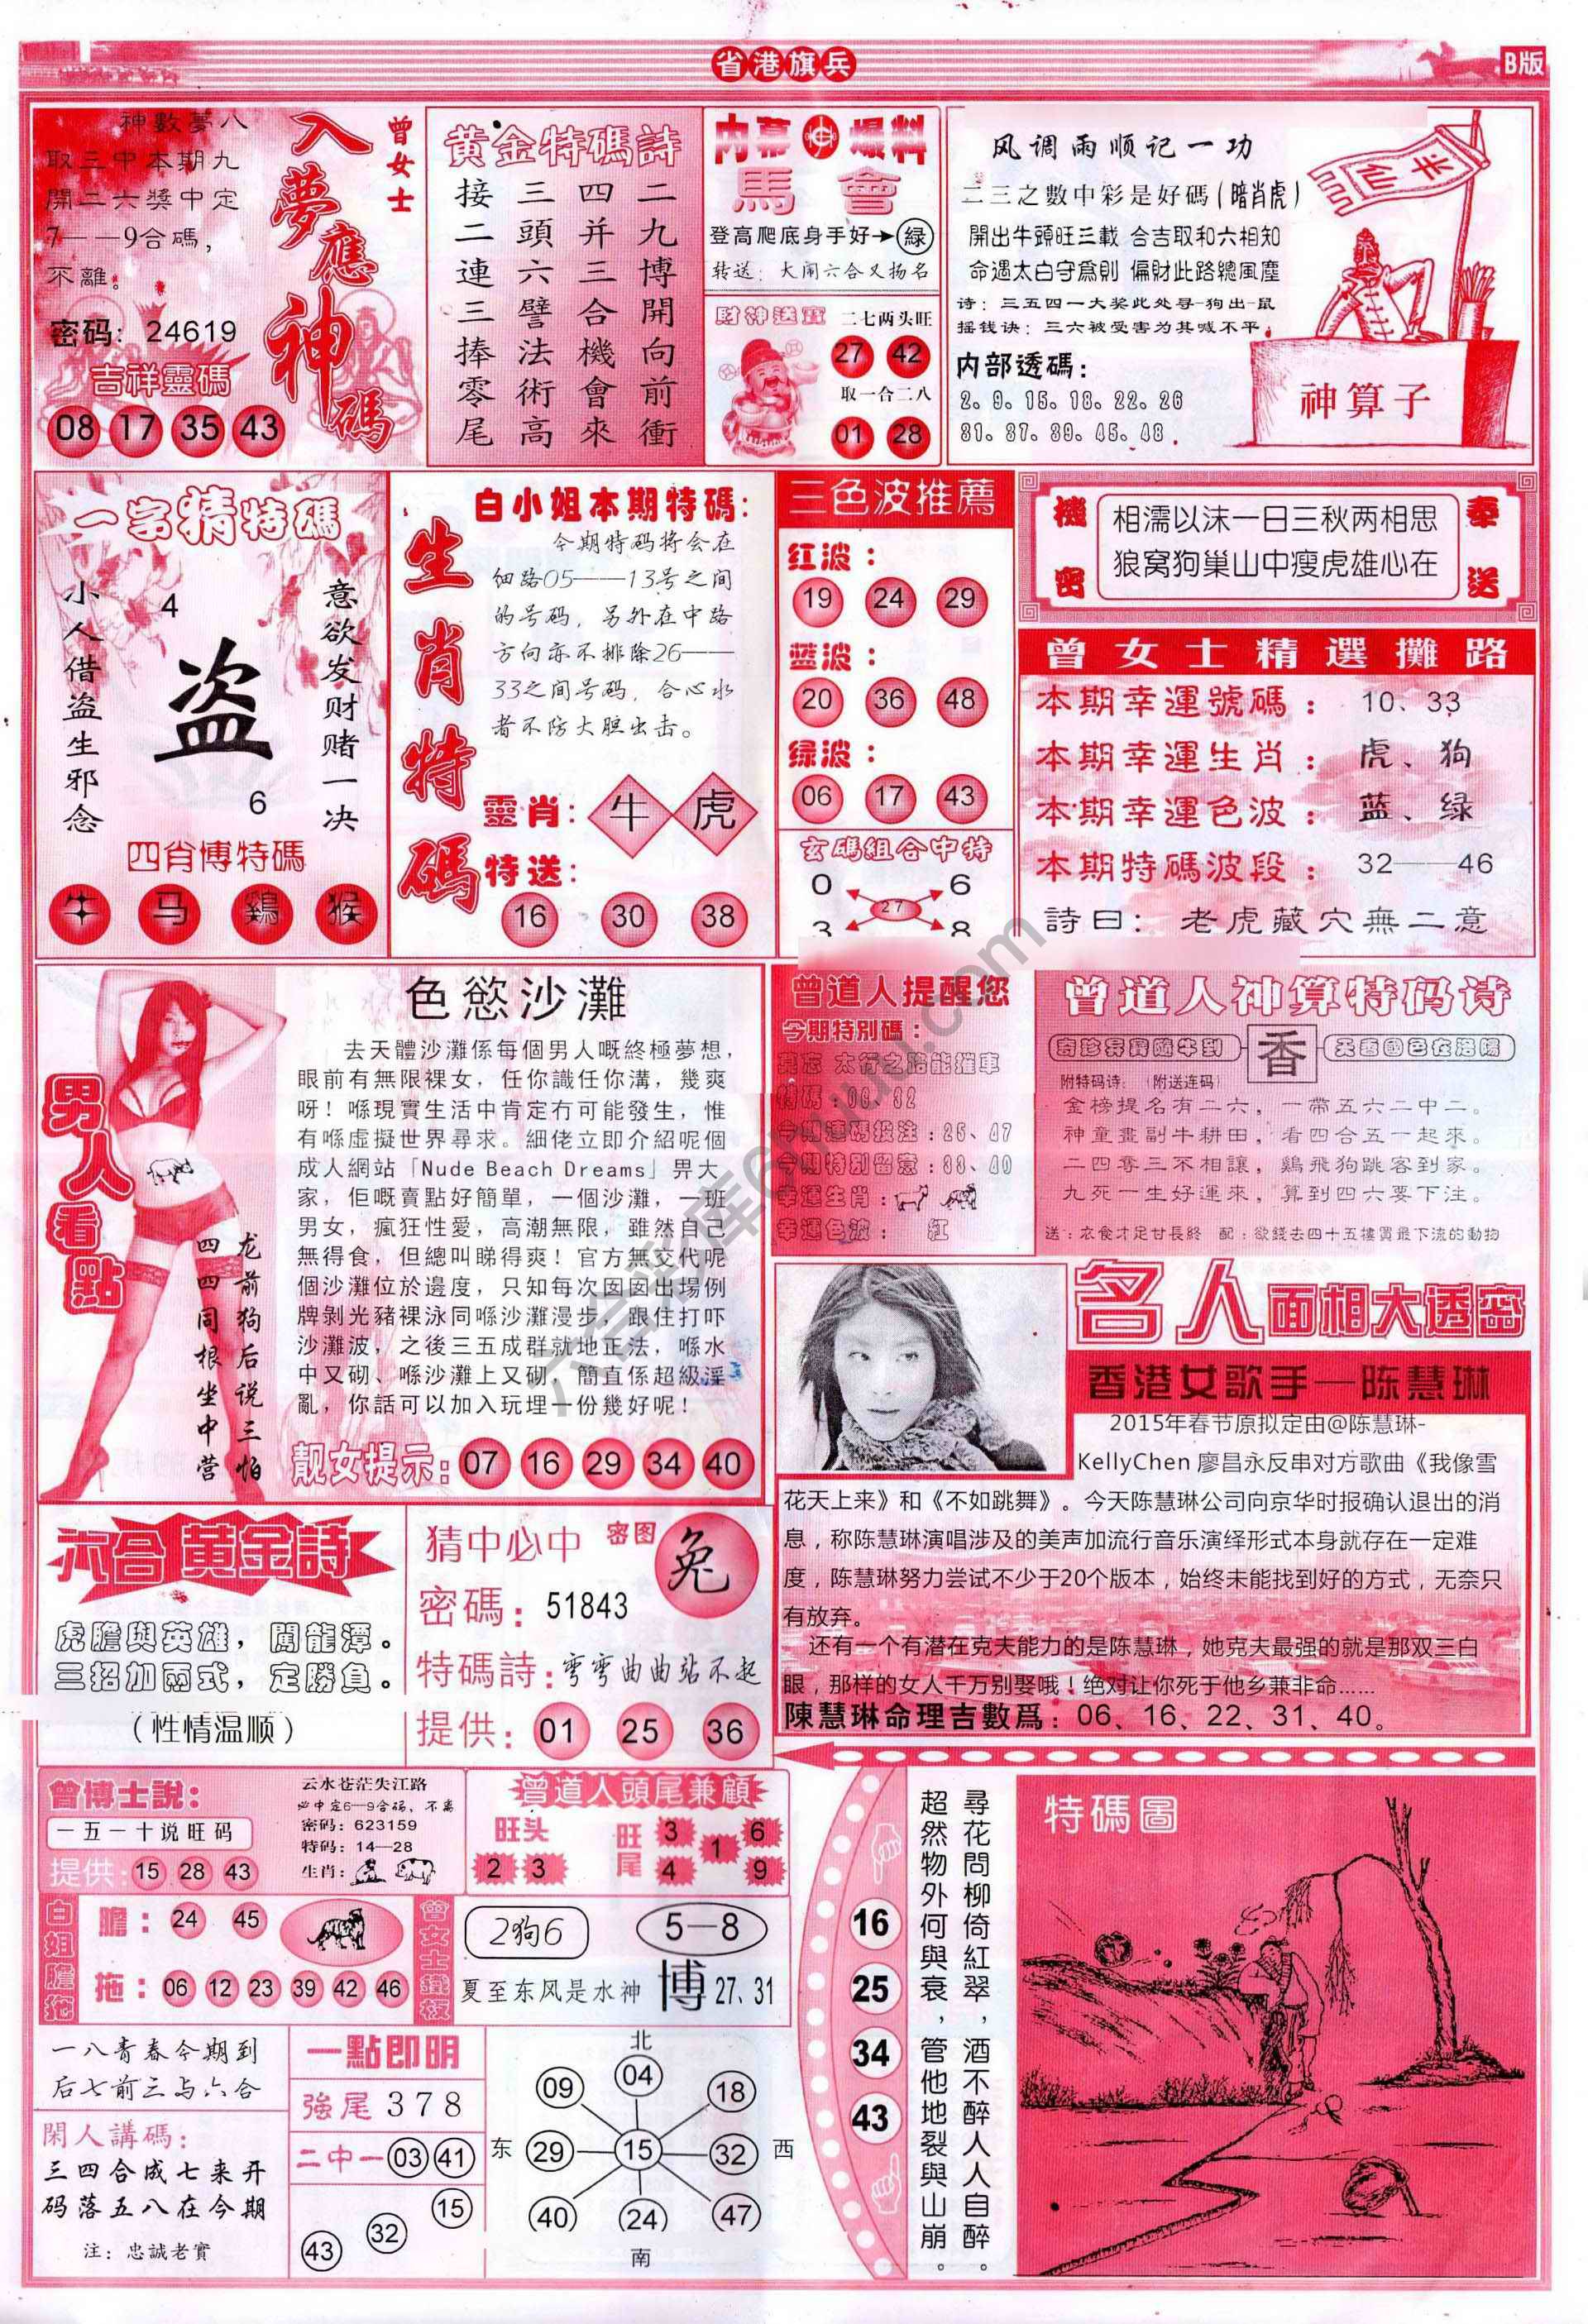 省港旗兵
B版
神數夢八
取三中本期九
開二六獎中定
7——9合碼，
不離。
密码：24619
吉祥靈碼
08 17 35 43
曾女士
入夢應神碼
黄金特碼詩
二九博開向前衝
四并三合機會來
三頭六譬法術高
接二連三捧零尾
内幕爆料
馬會
登高爬底身手好→綠
转送：大闹六合又扬名
財神送寶
二七两头旺
27 42
取一合二八
01 28
风调雨顺记一功
二三之數中彩是好碼(暗肖虎)
開出牛頭旺三載 合吉取和六相知
命遇太白守爲則 偏財此路總風塵
诗：三五四一大奖此处寻-狗出-鼠
摇钱诀：三六被受害为其喊不平。
内部透碼：
2。9。15。18。22。26
31。37。39。45。48．
半仙
神算子
一字猜特碼
意欲发财赌一决
小人借盗生邪念
4
盗
6
四肖博特碼
牛 马 鷄 猴
生肖特碼
白小姐本期特碼：
今期特码将会在
细路05——13号之间
的号码，另外在中路
方向亦不排除26——
33之间号码，合心水
者不防大胆出击。
靈肖：牛 虎
特送：
16 30 38
三色波推薦
红波：
19 24 29
蓝波：
20 36 48
绿波：
06 17 43
玄碼組合中特
0 6
27
3 8
機密
奉送
相濡以沫一日三秋两相思
狼窝狗巢山中瘦虎雄心在
曾女士精選攤路
本期幸運號碼：10、33
本期幸運生肖：虎、狗
本期幸運色波：蓝、绿
本期特碼波段：32——46
詩曰：老虎藏穴無二意
男人看點
龙前狗后说三怕
四四同根坐中营
色慾沙灘
去天體沙灘係每個男人嘅終極夢想，
眼前有無限裸女，任你識任你溝，幾爽
呀！喺現實生活中肯定冇可能發生，惟
有喺虛擬世界尋求。細佬立即介紹呢個
成人網站「Nude Beach Dreams」畀大
家，佢嘅賣點好簡單，一個沙灘，一班
男女，瘋狂性愛，高潮無限，雖然自己
無得食，但總叫睇得爽！官方無交代呢
個沙灘位於邊度，只知每次囡囡出場例
牌剝光豬裸泳同喺沙灘漫步，跟住打吓
沙灘波，之後三五成群就地正法，喺水
中又砌、喺沙灘上又砌，簡直係超級淫
亂，你話可以加入玩埋一份幾好呢！
靓女提示：07 16 29 34 40
曾道人提醒您
今期特別碼：
莫忘 太行之路能摧車
特碼：08、32
今期連碼投注：25、47
今期特別留意：33、40
幸運生肖：
幸運色波：紅
曾道人神算特码诗
奇珍异寶隨牛到
香
天香國色在洛陽
附特码诗：（附送连码）
金榜提名有二六，一帶五六二中二。
神童畫副牛耕田，看四合五一起來。
二四奪三不相讓，鷄飛狗跳客到家。
九死一生好運來，算到四六要下注。
送：衣食才足甘長終 配：欲錢去四十五樓買最下流的動物
名人面相大透密
香港女歌手—陈慧琳
2015年春节原拟定由@陈慧琳-
KellyChen 廖昌永反串对方歌曲《我像雪
花天上来》和《不如跳舞》。今天陈慧琳公司向京华时报确认退出的消
息，称陈慧琳演唱涉及的美声加流行音乐演绎形式本身就存在一定难
度，陈慧琳努力尝试不少于20个版本，始终未能找到好的方式，无奈只
有放弃。
还有一个有潜在克夫能力的是陈慧琳，她克夫最强的就是那双三白
眼，那样的女人千万别娶哦！绝对让你死于他乡兼非命……
陳慧琳命理吉數爲：06、16、22、31、40。
六合黄金詩
虎膽與英雄，闖龍潭。
三招加兩式，定勝負。
（性情温顺）
猜中必中
密图
兔
密碼：51843
特碼詩：弯弯曲曲站不起
提供：01 25 36
曾博士説：
一五一十说旺码
提供：15 28 43
云水苍茫失江路
必中定6—9合码，不离
密码：623159
特码：14—28
生肖：
曾道人頭尾兼顧
旺头
2 3
旺尾
3 6
1
4 9
白姐膽拖
膽：24 45
拖：06 12 23 39 42 46
曾女士鐵板
2狗6
5—8
夏至东风是水神
博 27、31
一八青春今期到
后七前三与六合
閑人講碼：
三四合成七来开
码落五八在今期
注：忠誠老實
一點即明
強尾 378
二中一 03 41
15
32
43
北
04
09 18
东 29 15 32 西
40 24 47
南
16
25
34
43
尋花問柳倚紅翠，酒不醉人人自醉。
超然物外何與衰，管他地裂與山崩。
特碼圖
六合彩库6huuu.com